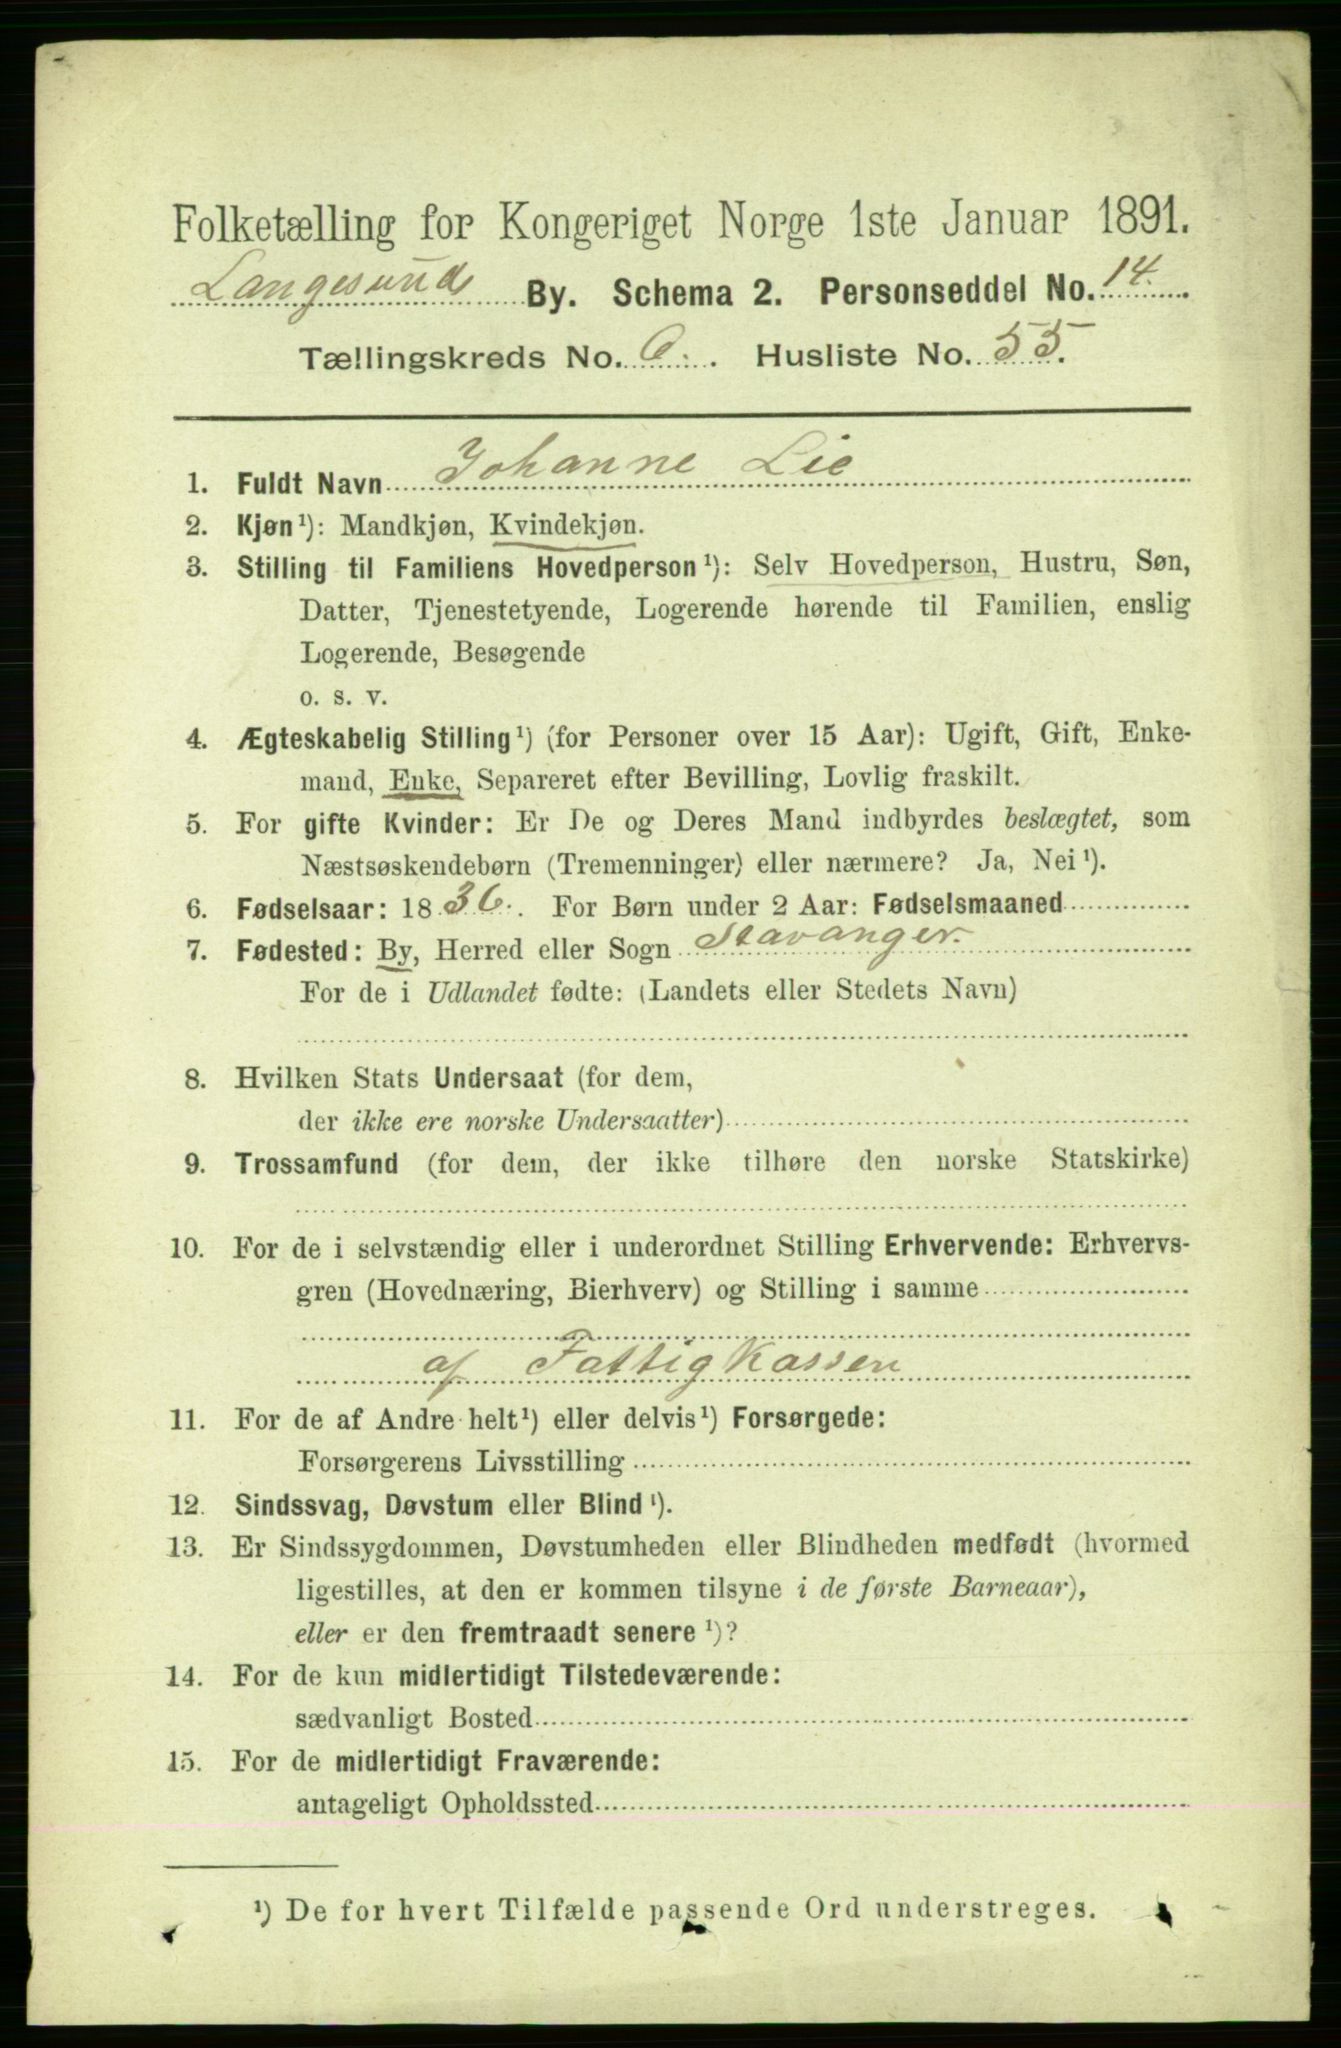 Folketælling for Kongeriget Norge 1ste Januar 1891.
Langesund By. Schema 2. Personseddel No. 14.
Tællingskreds No. 6. Husliste No. 55.
1. Fuldt Navn Johanne Lie
2. Kjøn¹): Mandkjøn, Kvindekjøn.
3. Stilling til Familiens Hovedperson¹): Selv Hovedperson, Hustru, Søn,
Datter, Tjenestetyende, Logerende hørende til Familien, enslig
Logerende, Besøgende
o. s. v.
4. Ægteskabelig Stilling¹) (for Personer over 15 Aar): Ugift, Gift, Enke-
mand, Enke, Separeret efter Bevilling, Lovlig fraskilt.
5. For gifte Kvinder: Er De og Deres Mand indbyrdes beslægtet, som
Næstsøskendebørn (Tremenninger) eller nærmere? Ja, Nei¹).
6. Fødselsaar: 1836. For Børn under 2 Aar: Fødselsmaaned
7. Fødested: By, Herred eller Sogn Stavanger.
For de i Udlandet fødte: (Landets eller Stedets Navn)
8. Hvilken Stats Undersaat (for dem,
der ikke ere norske Undersaatter)
9. Trossamfund (for dem, der ikke tilhøre den norske Statskirke)
10. For de i selvstændig eller i underordnet Stilling Erhvervende: Erhvervs-
gren (Hovednæring, Bierhverv) og Stilling i samme
af Fattigkassen
11. For de af Andre helt¹) eller delvis¹) Forsørgede:
Forsørgerens Livsstilling
12. Sindssvag, Døvstum eller Blind¹).
13. Er Sindssygdommen, Døvstumheden eller Blindheden medfødt (hvormed
ligestilles, at den er kommen tilsyne i de første Barneaar),
eller er den fremtraadt senere¹)?
14. For de kun midlertidigt Tilstedeværende:
sædvanligt Bosted
15. For de midlertidigt Fraværende:
antageligt Opholdssted
¹) De for hvert Tilfælde passende Ord understreges.